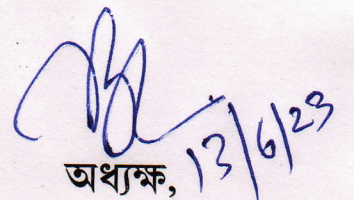 অধ্যক্ষ, 13/6/23